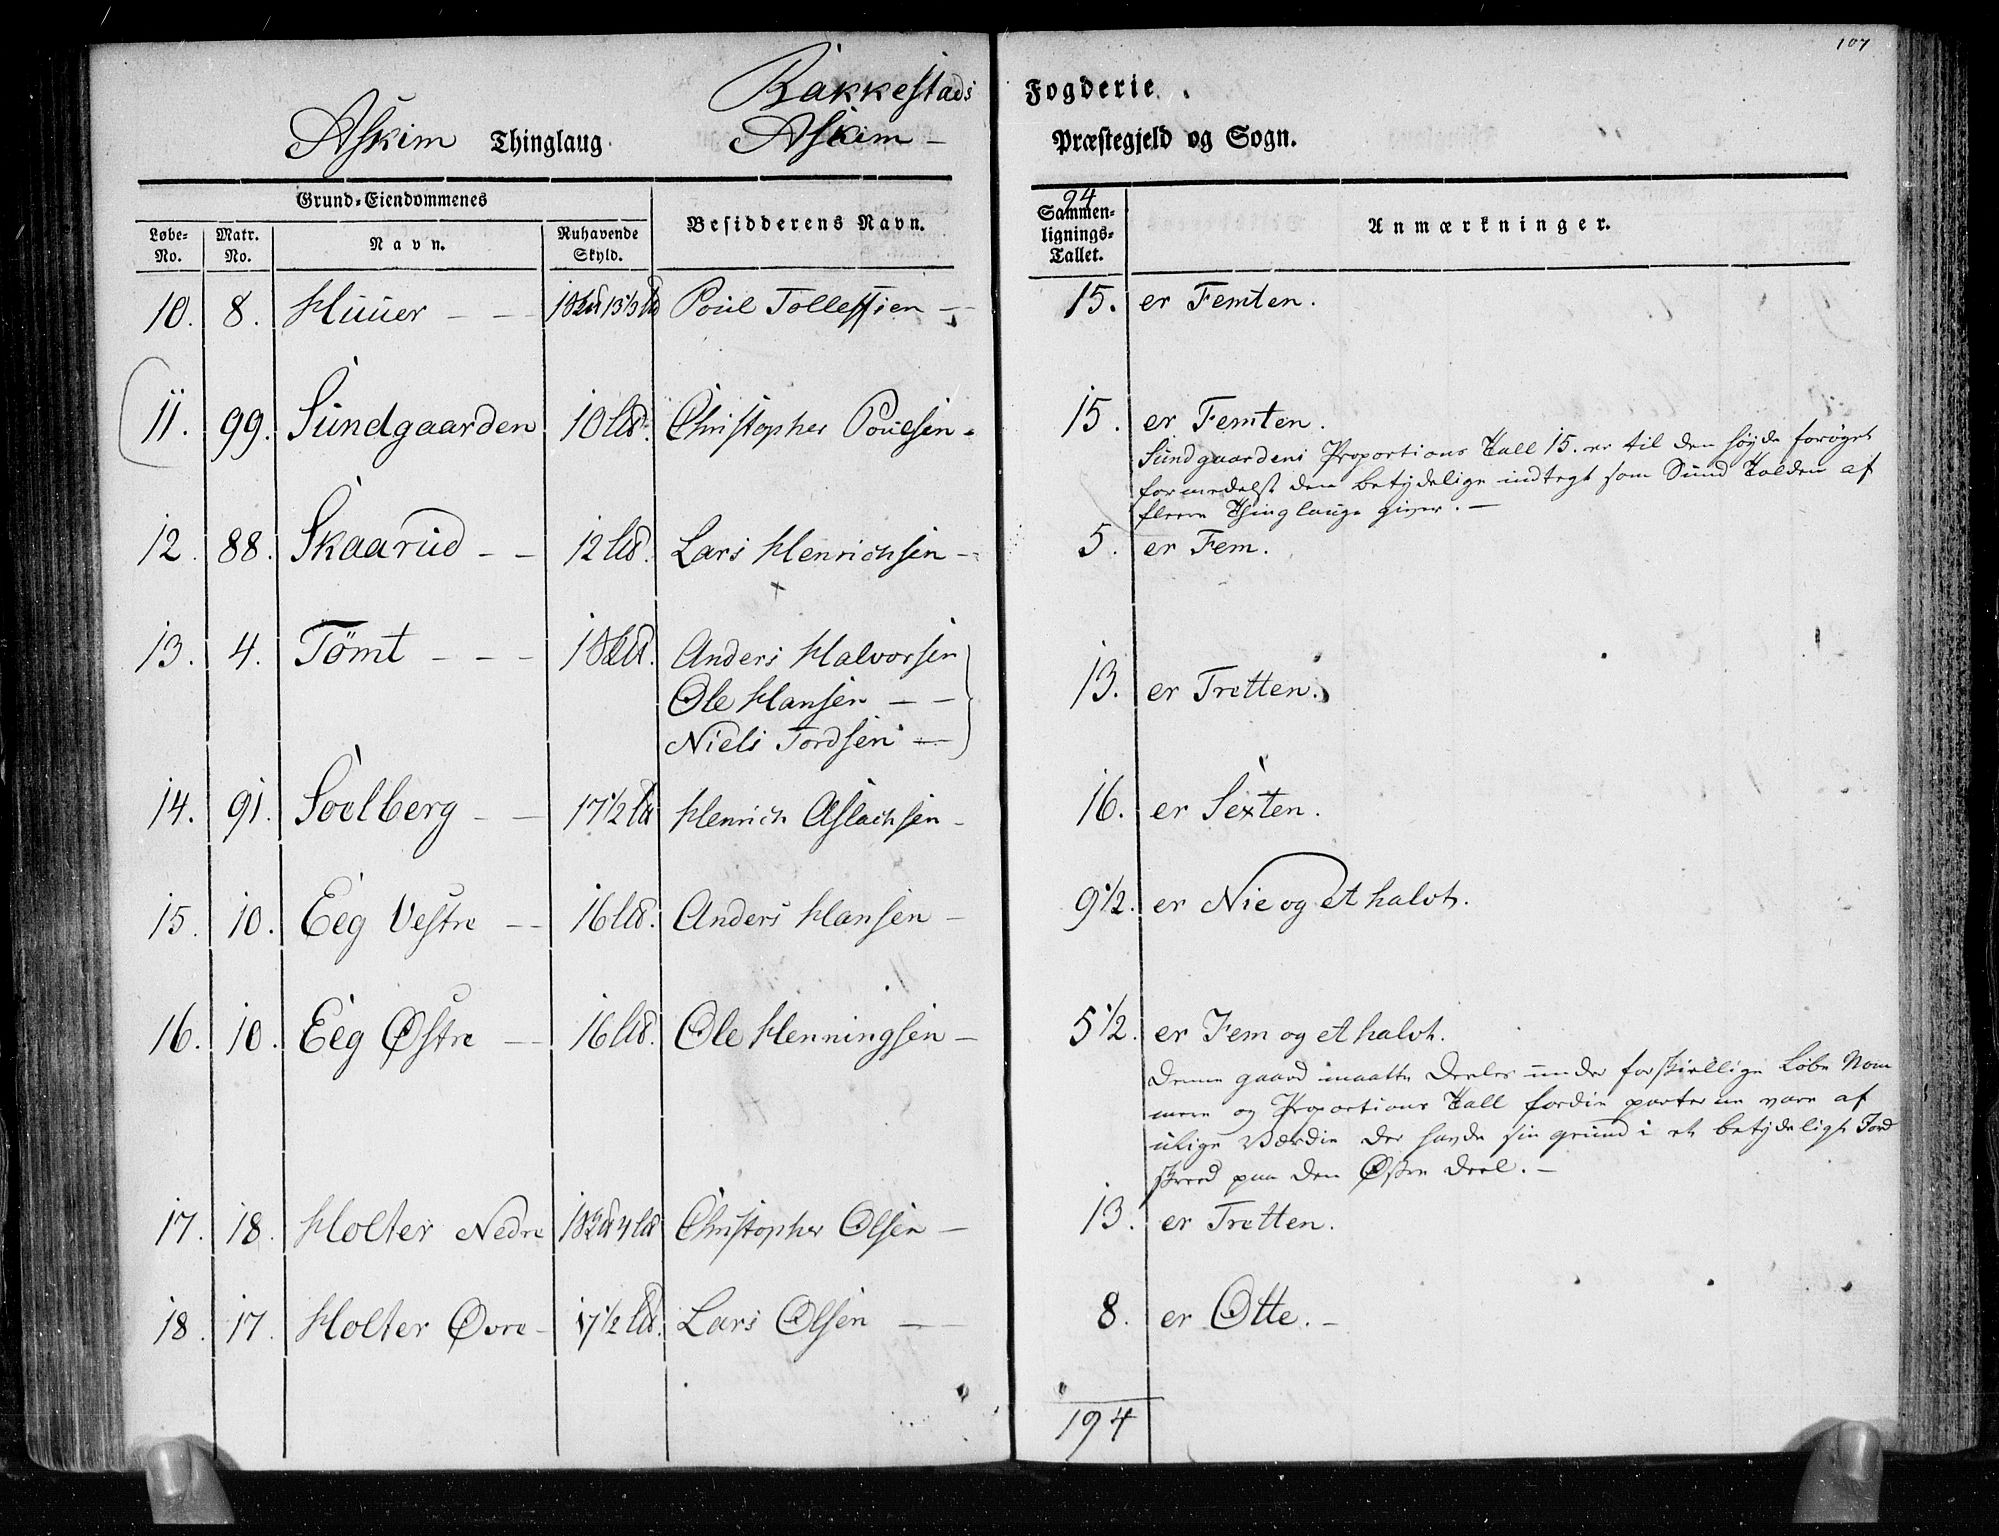 107
Rakkestads Fogderie.
Askim Thinglaug. Askim – Præstegjeld og Sogn.
Grund-Eiendommenes
Løbe-No. Matr. No. Navn. Nuhavende Skyld. Besidderens Navn. Sammenlignings-Tallet. Anmærkninger.
94
10. 8. Huuer – – Poul Tollefsen – 15. er Femten.
11. 99. Sundgaarden 10 L℔. Christopher Poulsen. 15. er Femten.
Sundgaardens Proportions Tall 15. er til den høyde forøget
formedelst den betydelige indtegt som Sund Tolden af
fleere Thinglauge giver. –
12. 88. Skaarud – – 12 L℔. Lars Henrichsen – 5. er Fem.
13. 4. Tömt – – – Anders Halvorsen
Ole Hansen – – 13. er Tretten.
Niels Tordsen –
14. 91. Soelberg – – 17 1/2 L℔ Henrich Aslachsen – 16. er Sexten.
15. 10. Eeg Vestre – – 16 L℔. Anders Hansen – 9 1/2. er Nie og et halvt.
16. 10. Eeg Østre – – 16 L℔. Ole Henningsen – 5 1/2. er Fem og et halvt.
Denne gaard maatte Deeles under forskiellige Løbe Nom
mere og Proportions Tall fordie parterne vare af
ulige Værdie der havde sin grund i et betydeligt Jord
skreed paa den Østre Deel. –
17. 18. Holter Nedre Christopher Olsen – 13. er Tretten.
18. 17. Holter Øvre – 17 1/2 L℔. Lars Olsen – – 8. er Otte. –
194